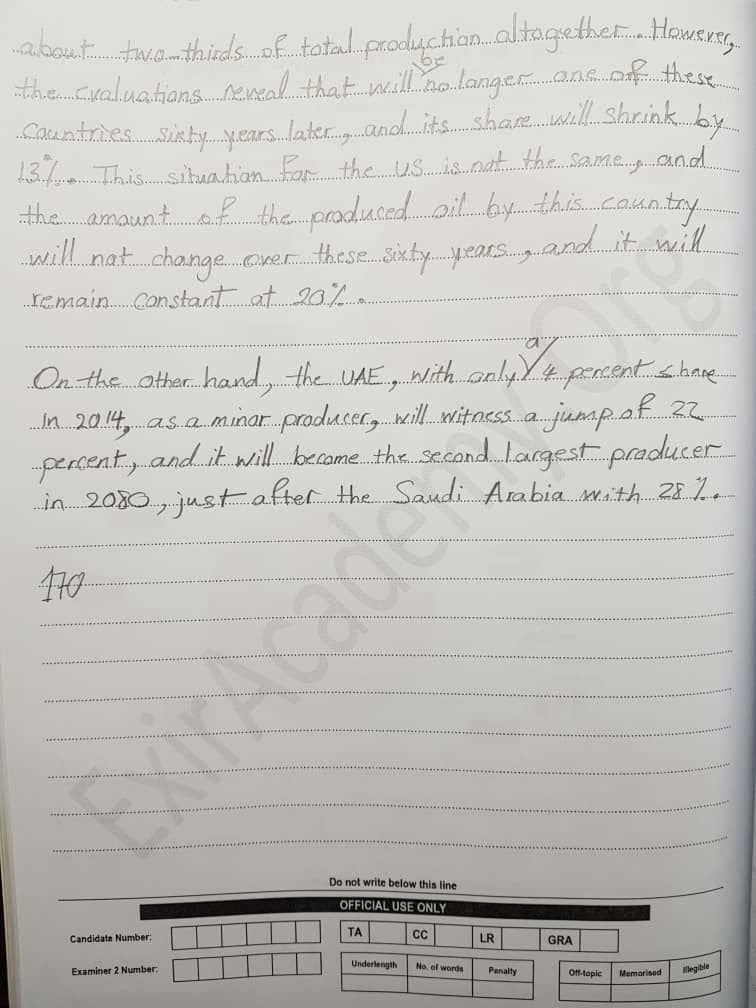 about two-thirds of total production altogether. However,
be
the evaluations reveal that will no longer one of these
Countries sixty years later, and its share will shrink by
13%. This situation for the US is not the same, and
the amount of the produced oil by this country
will not change over these sixty years, and it will
remain constant at 20%.
a
On the other hand, the UAE, with only 4 percent share
in 2014, as a minor producer, will witness a jump of 22
percent, and it will become the second largest producer
in 2080, just after the Saudi Arabia with 28%.
170
ExirAcademy.Org
Do not write below this line
OFFICIAL USE ONLY
Candidate Number: TA CC LR GRA
Examiner 2 Number: Underlength No. of words Penalty Off-topic Memorised Illegible